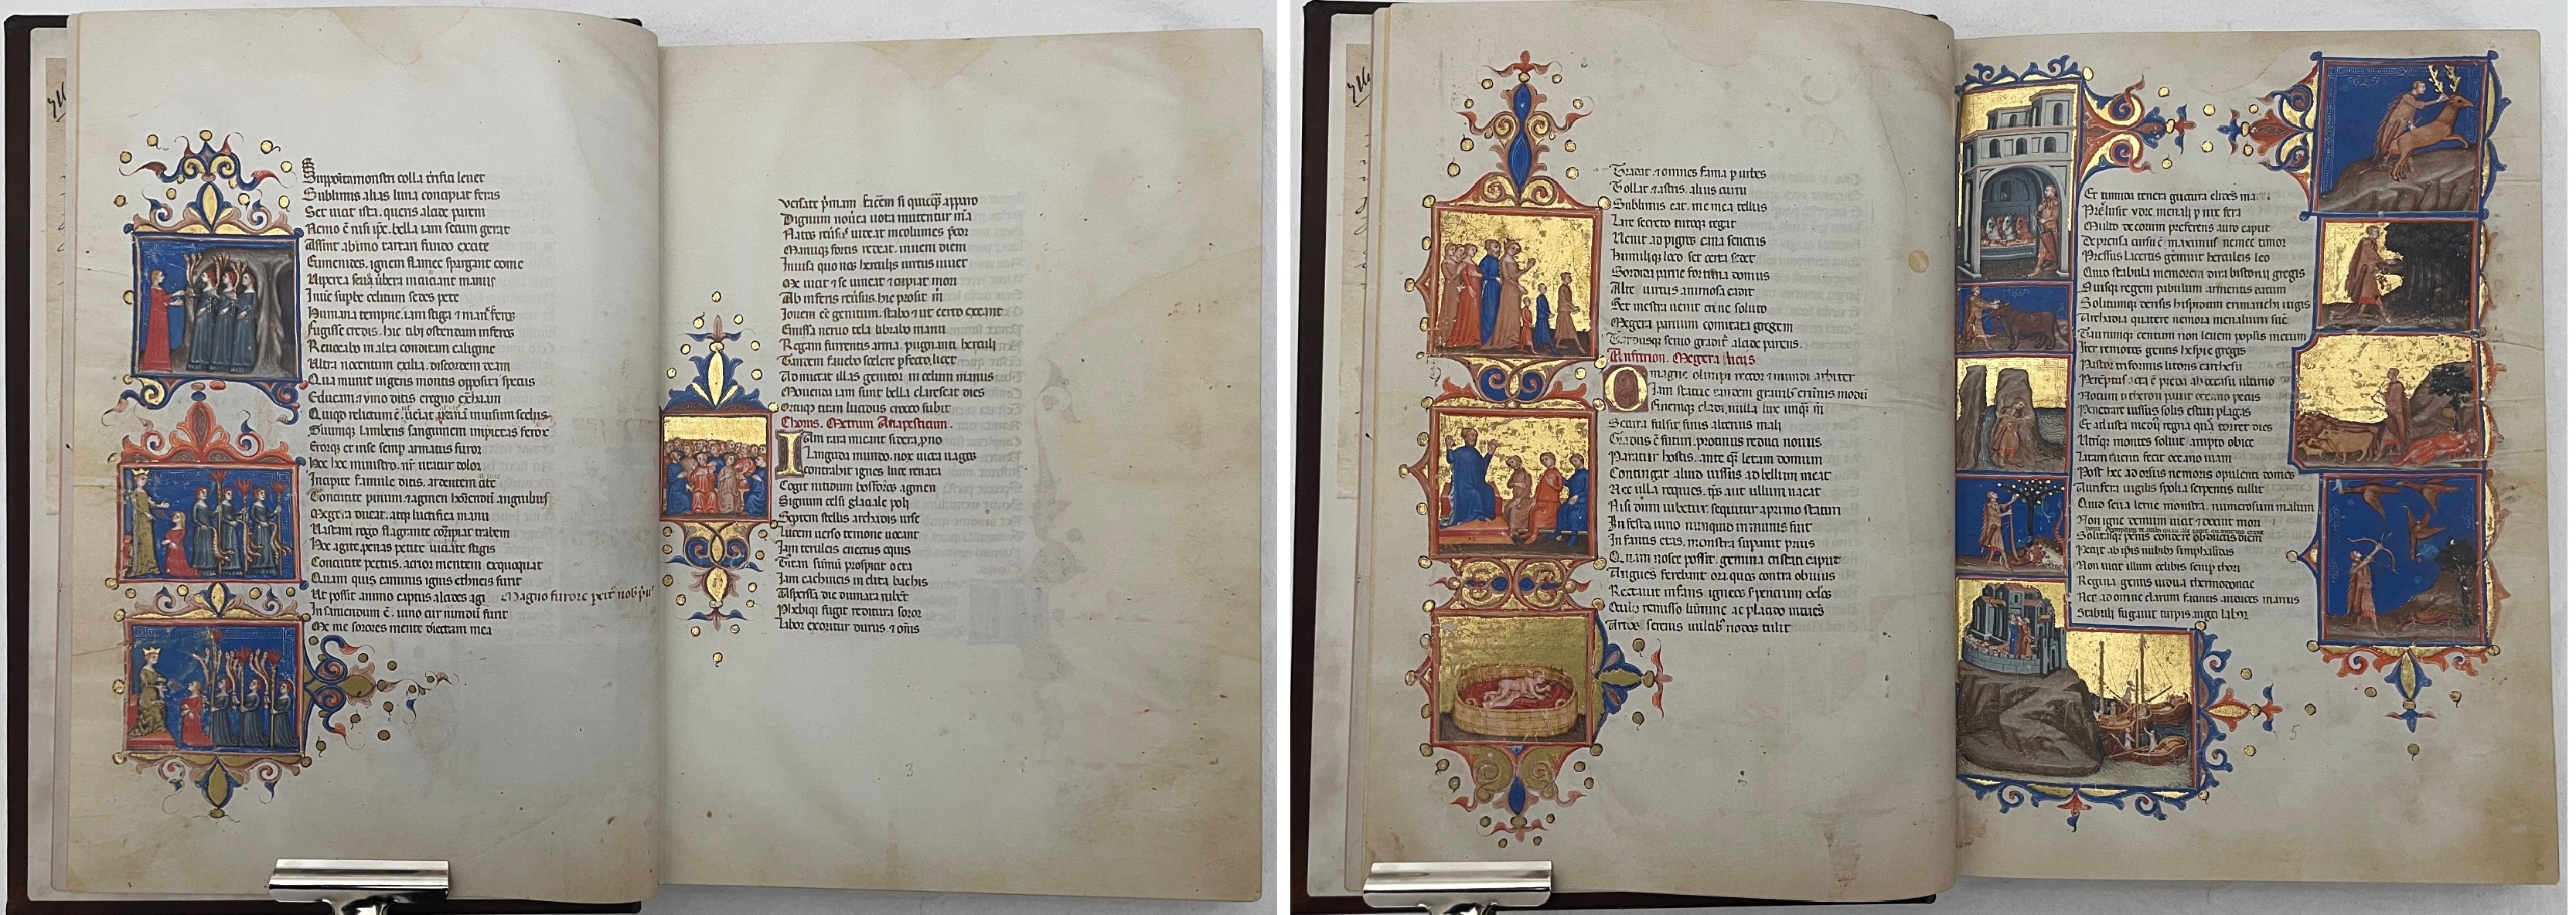 Suppoita monstri colla t̄rifici leuet
Sublimis alias luna concipiat feras
Set uicit ista. queris alcide parem
Nemo ē nisi ip̄e. bella iam secum gerat
Assint ab imo tartari fundo excite
Eumenides. ignem flamee spargant come
Vipera seua ūbera incutiant manus
I nūc supbe celitum sedes pete
Humana tempne. iam stiga & man̄ feros
Fugisse credis. hic tibi ostendam inferos
Reuocabo in alta conditam caligine
Ultra nocentum exilia. discordem deam
Qua munit ingens montis oppositi specus
Educam & ymo ditis e regno ext̄ham
Quiqd relictum ē. ueniat inuisum scelus
Suumqz lambens sanguinem impietas ferox
Errorqz & in se semp armatus furor
Hoc hoc ministro. nr̄ utatur dolor
Incipite famule ditis. ardentem citē
Concutite pinum & agmen horrendū anguibus
Megera ducat. atqz luctifica manu
Uastam rogo flagrante corripiat trabem
Hoc agite. penas petite uiciate stigis
Concutite pectus. acrior mentem exquoquat
Quam quis caminus ignis ethneis furit
Ut possit animo captus alcides agi Magno furore
In sanciendum ē. iuno cur nundū furit
Me me sorores mente deiectam mea
uersate pr̄mam facēm si quicqz apparo
Dignum nouerca uota mutentur mea
Natos reusus uideat incolumes pcor
Manuqz fortis redeat. inueni diem
Inuisa quo nos herculis uirtus iuuet
Me uicit & se uincat & cupiat mori
Ab inferis reusus. hic prosit m̄
Ioue m ē genitum. stabo & ut certo exeant
Emissa neruo tela librabo manu
Regam furentis arma. pugnanti herculi
Tandem fauebo scelere pfecto licet
Admittat illas genitor in celum manus
Mouenda iam sunt bella clarescat dies
Ortuqz titan lucidus croceo subit
Chorus. Metrum Anapesticum.
Iam rara micant sidera prono
Languida mundo. nox uicta uagos
contrahit ignes luce renata
Cogit nitidum bosforos agmen
Signum celsi glaciale poli
Septem stellis archadis urse
Lucem uerso temone uocant
Iam ceruleis euectus equis
Titan sūma prospicit oeta
Iam cathmeis in clita bachis
Aspersa die dumata rubēt
Phebiqz fugit reditura soror
Labor exoritur durus & om̄is
3
Tradat. & omnes fama p urbes
Tollat. & astris. alius curru
Sublimis eat. me mea tellus
Lare secreto tutoqz tegat
Uenit ad pigros cana senectus
Humiliqz loco set certa sedet
Sordida parue fortuna domus
Alte uirtus animosa cadit
Set mestra uenit crine soluto
Megera paruum comitata gregem
Tardusqz senio graditr alcide parens.
Anfitrion. Megera. Licus
O magne olimpi rector & mundi arbiter
Iam statue tandem grauibz erūnis modū
Finemqz cladi. nulla lux unqz m̄
Secura fulsit finis alterius mali
Gradus ē futuri. protinus reduci nouus
Paratur hostis. ante qz letam domum
Contingat aliud iussus ad bellum meat
Nec ulla requies. tps aut ullum uacat
Nisi dum iubetur. sequitur a primo statim
Infesta iuno nunquid inmunis fuit
Infantis etas. monstra superauit prius
Quam nosce possit. gemina cristati caput
Angues ferebant ora quos contra obuius
Reptauit infans igneos serpentum oclos
Oculis remisso lumine ac placido intuēs
Artos serenis uultibz nodos tulit
Et tumida tenera guttura elidens manu
Prelusit ydre. menali pnix fera
Multo decorum preferens auro caput
Deprensa cursu ē maximus nemee timor
Pressus lacertis gemuit herculeis leo
Quid stabula memorem dira bistonii gregis
Suisqz regem pabulum armentis datum
Solitumqz densis hispidum erimanthi iugis
Archadia quatere nemora menalium suē
Taurumqz centum non leuem populis metum
Inter remotos gentis hesperie greges
Pastor triformis litoris carthesii
Peremptus. acta ē preda ab occasu ultimo
Notum citheron pauit oceano pecus
Penetrare iussus solis estiui plagas
Et adusta medius regna que torret dies
Utrimqz montes soluit. abrupto obice
Latam ruenti fecit oceano uiam
Post hec adortus nemoris opulenti domos
Aurifera uigilis spolia serpentis tulit
Quid seua lerne monstra. numerosum malum
Non igne demum uicit & docuit mori
Solitasqz pennis condere obductis diem
Petiit ab ipis nubibus stimphalidas
Non uicit illum celibis semp thori
Regina gentis uidua thermodontie
Nec ad omne clarum facinus audaces manus
Stabuli fugauit turpis augei labor
5